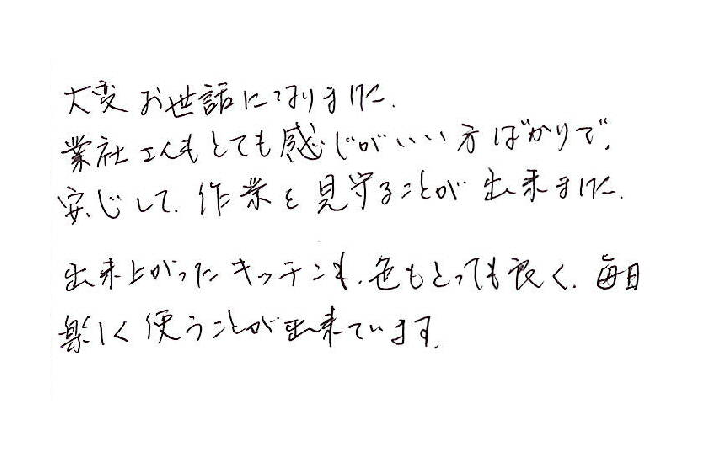 大変お世話になりました.
業社さんもとても感じがいい方ばかりで,
安心して、作業を見守ることが出来ました.
出来上がったキッチンも、色もとっても良く、毎日
楽しく使うことが出来ています.